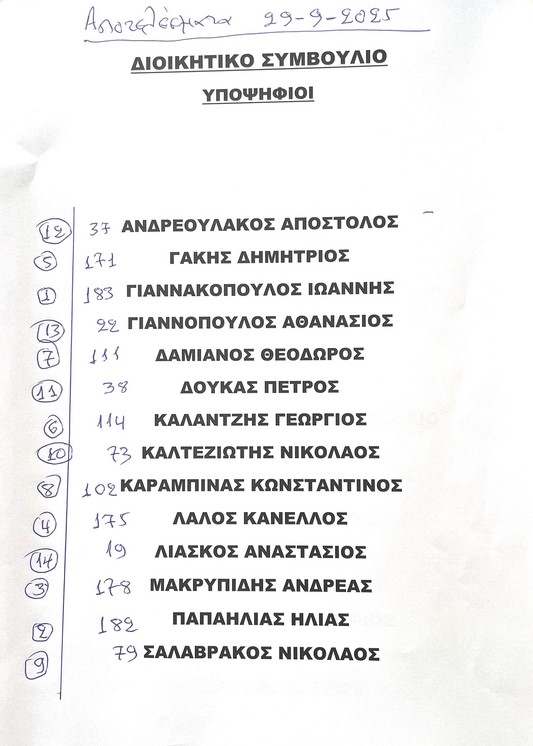 Αποτελέσματα 29-9-2025
ΔΙΟΙΚΗΤΙΚΟ ΣΥΜΒΟΥΛΙΟ
ΥΠΟΨΗΦΙΟΙ
12 37 ΑΝΔΡΕΟΥΛΑΚΟΣ ΑΠΟΣΤΟΛΟΣ
5 171 ΓΑΚΗΣ ΔΗΜΗΤΡΙΟΣ
1 183 ΓΙΑΝΝΑΚΟΠΟΥΛΟΣ ΙΩΑΝΝΗΣ
13 22 ΓΙΑΝΝΟΠΟΥΛΟΣ ΑΘΑΝΑΣΙΟΣ
7 111 ΔΑΜΙΑΝΟΣ ΘΕΟΔΩΡΟΣ
11 38 ΔΟΥΚΑΣ ΠΕΤΡΟΣ
6 114 ΚΑΛΑΝΤΖΗΣ ΓΕΩΡΓΙΟΣ
10 73 ΚΑΛΤΕΖΙΩΤΗΣ ΝΙΚΟΛΑΟΣ
8 102 ΚΑΡΑΜΠΙΝΑΣ ΚΩΝΣΤΑΝΤΙΝΟΣ
4 175 ΛΑΛΟΣ ΚΑΝΕΛΛΟΣ
14 19 ΛΙΑΣΚΟΣ ΑΝΑΣΤΑΣΙΟΣ
3 178 ΜΑΚΡΥΠΙΔΗΣ ΑΝΔΡΕΑΣ
2 182 ΠΑΠΑΗΛΙΑΣ ΗΛΙΑΣ
9 79 ΣΑΛΑΒΡΑΚΟΣ ΝΙΚΟΛΑΟΣ